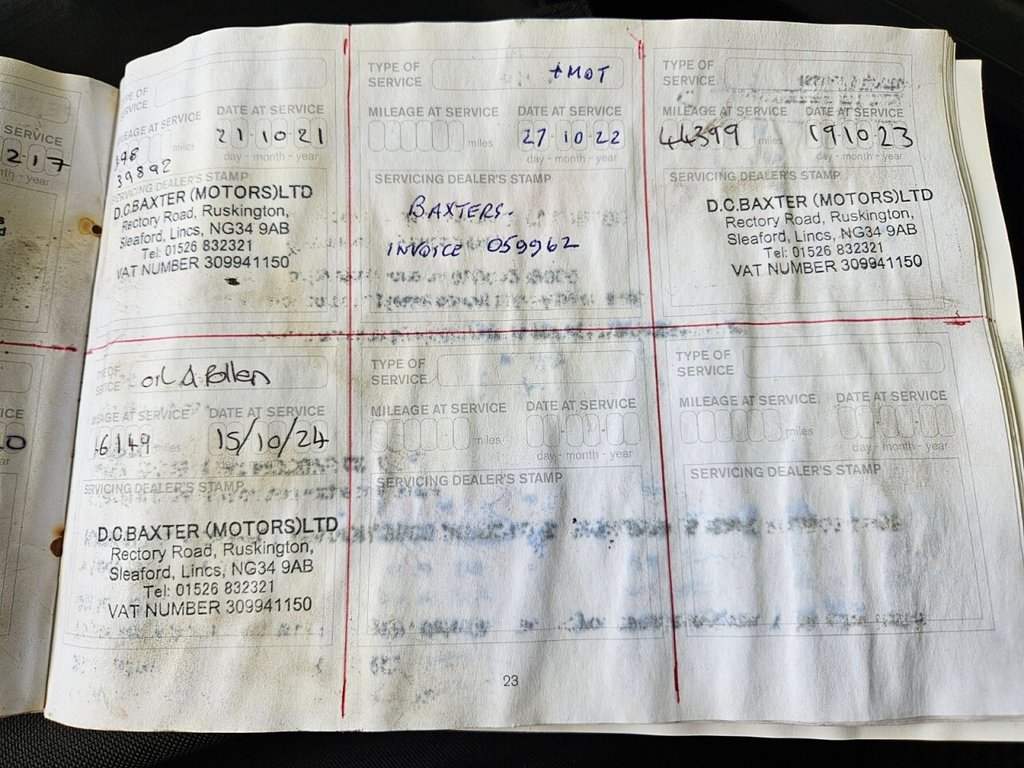 SERVICE
217
month - year
TYPE OF SERVICE
MILEAGE AT SERVICE
DATE AT SERVICE
21 10 21
39892
day - month - year
SERVICING DEALER'S STAMP
D.C.BAXTER (MOTORS)LTD
Rectory Road, Ruskington,
Sleaford, Lincs, NG34 9AB
Tel: 01526 832321
VAT NUMBER 309941150
TYPE OF
SERVICE
+MOT
MILEAGE AT SERVICE
DATE AT SERVICE
miles
27 10 22
day - month - year
SERVICING DEALER'S STAMP
BAXTERS.
INVOICE 059962
TYPE OF
SERVICE
MILEAGE AT SERVICE
DATE AT SERVICE
44399 miles
19 10 23
day - month - year
SERVICING DEALER'S STAMP
D.C.BAXTER (MOTORS)LTD
Rectory Road, Ruskington,
Sleaford, Lincs, NG34 9AB
Tel: 01526 832321
VAT NUMBER 309941150
OIL & Pollen
DATE AT SERVICE
46149 miles
15/10/24
day - month - year
SERVICING DEALER'S STAMP
D.C.BAXTER (MOTORS)LTD
Rectory Road, Ruskington,
Sleaford, Lincs, NG34 9AB
Tel: 01526 832321
VAT NUMBER 309941150
TYPE OF
SERVICE
MILEAGE AT SERVICE
DATE AT SERVICE
miles
day - month - year
SERVICING DEALER'S STAMP
TYPE OF
SERVICE
MILEAGE AT SERVICE
DATE AT SERVICE
miles
day - month - year
SERVICING DEALER'S STAMP
23